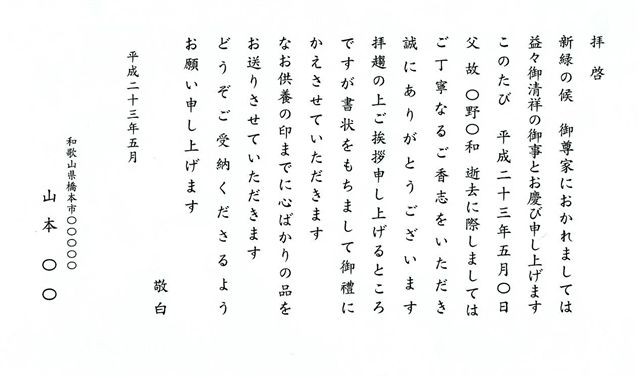 拝啓
新緑の候　御尊家におかれましては
益々御清祥の御事とお慶び申し上げます
このたび　平成二十三年五月〇日
父　故　〇野〇和　逝去に際しましては
ご丁寧なるご香志をいただき
誠にありがとうございます
拝趨の上ご挨拶申し上げるところ
ですが書状をもちまして御禮に
かえさせていただきます
なお供養の印までに心ばかりの品を
お送りさせていただきます
どうぞご受納くださるよう
お願い申し上げます
敬白
平成二十三年五月
和歌山県橋本市〇〇〇〇〇
山本　〇〇